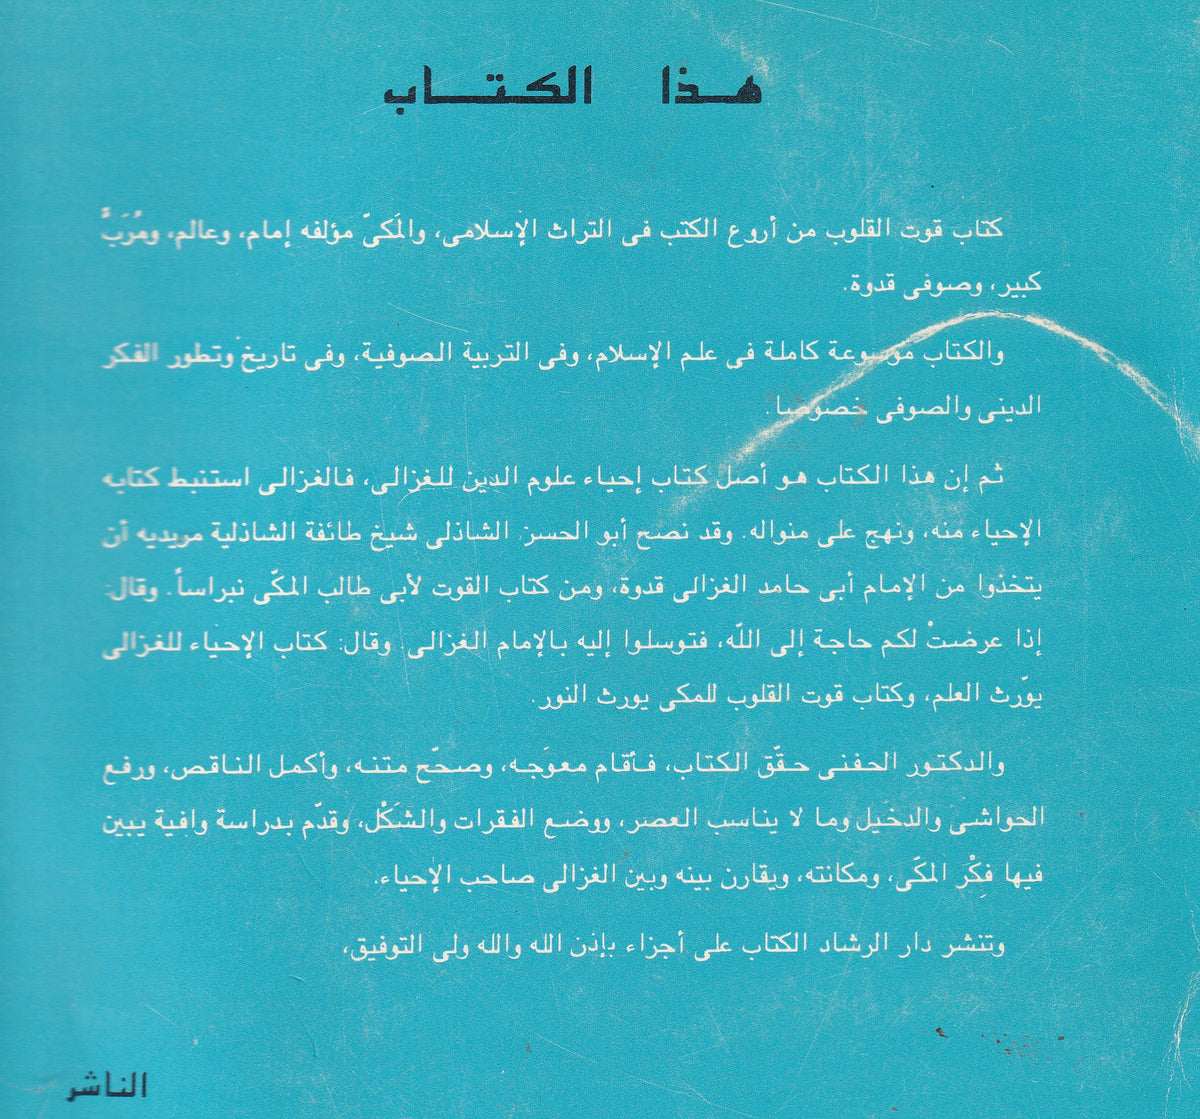 هذا الكتاب
كتاب قوت القلوب من أروع الكتب فى التراث الإسلامى، والمَكىّ مؤلفه إمام، وعالم، ومُرَبٍّ
كبير، وصوفى قدوة.
والكتاب موسوعة كاملة فى علم الإسلام، وفى التربية الصوفية، وفى تاريخ وتطور الفكر
الدينى والصوفى خصوصا.
ثم إن هذا الكتاب هو أصل كتاب إحياء علوم الدين للغزالى، فالغزالى استنبط كتابه
الإحياء منه، ونهج على منواله. وقد نصح أبو الحسن الشاذلى شيخ طائفة الشاذلية مريديه أن
يتخذوا من الإمام أبى حامد الغزالى قدوة، ومن كتاب القوت لأبى طالب المكّى نبراساً. وقال:
إذا عرضتْ لكم حاجة إلى اللّه، فتوسلوا إليه بالإمام الغزالى. وقال: كتاب الإحياء للغزالى
يورّث العلم، وكتاب قوت القلوب للمكى يورث النور.
والدكتور الحفنى حقّق الكتاب، فأقام معوَجه، وصحّح متنه، وأكمل الناقص، ورفع
الحواشىَ والدخيل وما لا يناسب العصر، ووضع الفقرات والشَكْل، وقدّم بدراسة وافية يبين
فيها فِكْرَ المكّى، ومكانته، ويقارن بينه وبين الغزالى صاحب الإحياء.
وتنشر دار الرشاد الكتاب على أجزاء بإذن الله والله ولى التوفيق،
الناشر